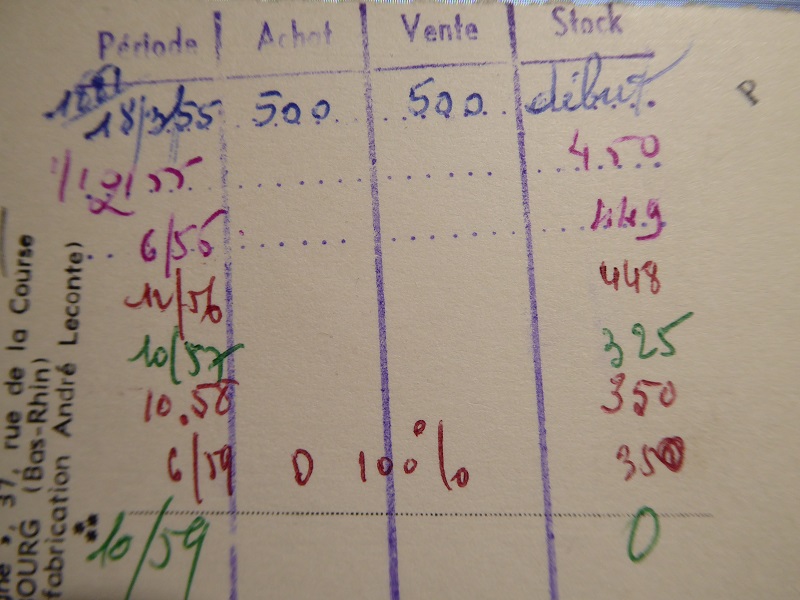 Période Achat Vente Stock
18/3/55 500 500 début
1/12/55 450
6/56 449
12/56 448
10/57 325
10.58 350
6/59 0 100% 350
10/59 0
P
37, rue de la Course
OURG (Bas-Rhin)
fabrication André Leconte)